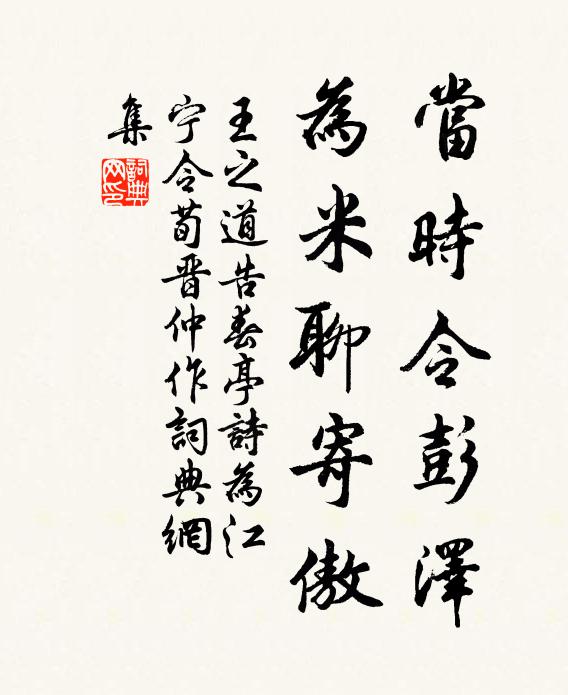 當時令彭澤
為米聊寄傲
王之道告春亭詩為江
宁令荀晋仲作詞典網
集
詞典
网印